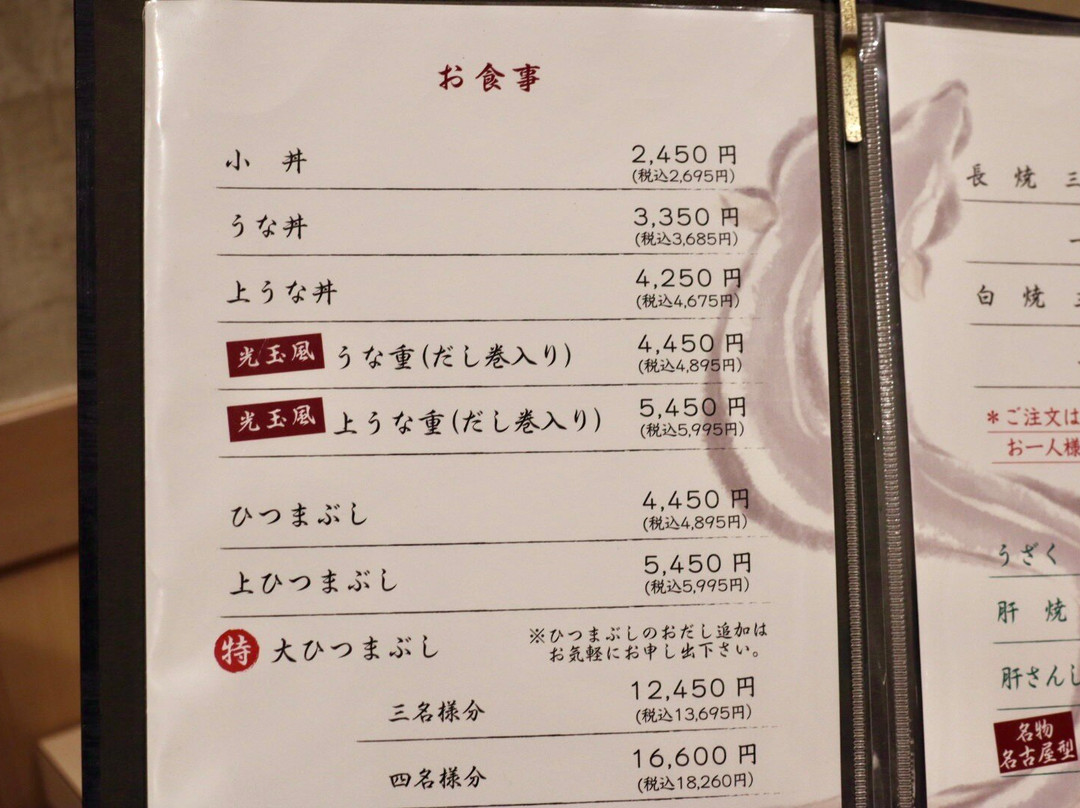 お食事
小 丼 2,450 円
(税込2,695円)
うな丼 3,350 円
(税込3,685円)
上うな丼 4,250 円
(税込4,675円)
光玉風 うな重(だし巻入り) 4,450 円
(税込4,895円)
光玉風 上うな重(だし巻入り) 5,450 円
(税込5,995円)
ひつまぶし 4,450 円
(税込4,895円)
上ひつまぶし 5,450 円
(税込5,995円)
特 大ひつまぶし
※ひつまぶしのおだし追加は
お気軽にお申し出下さい。
三名様分 12,450 円
(税込13,695円)
四名様分 16,600 円
(税込18,260円)
長 焼
白 焼
*ご注文は
お一人様
うざく
肝 焼
肝さんし
名物
名古屋型